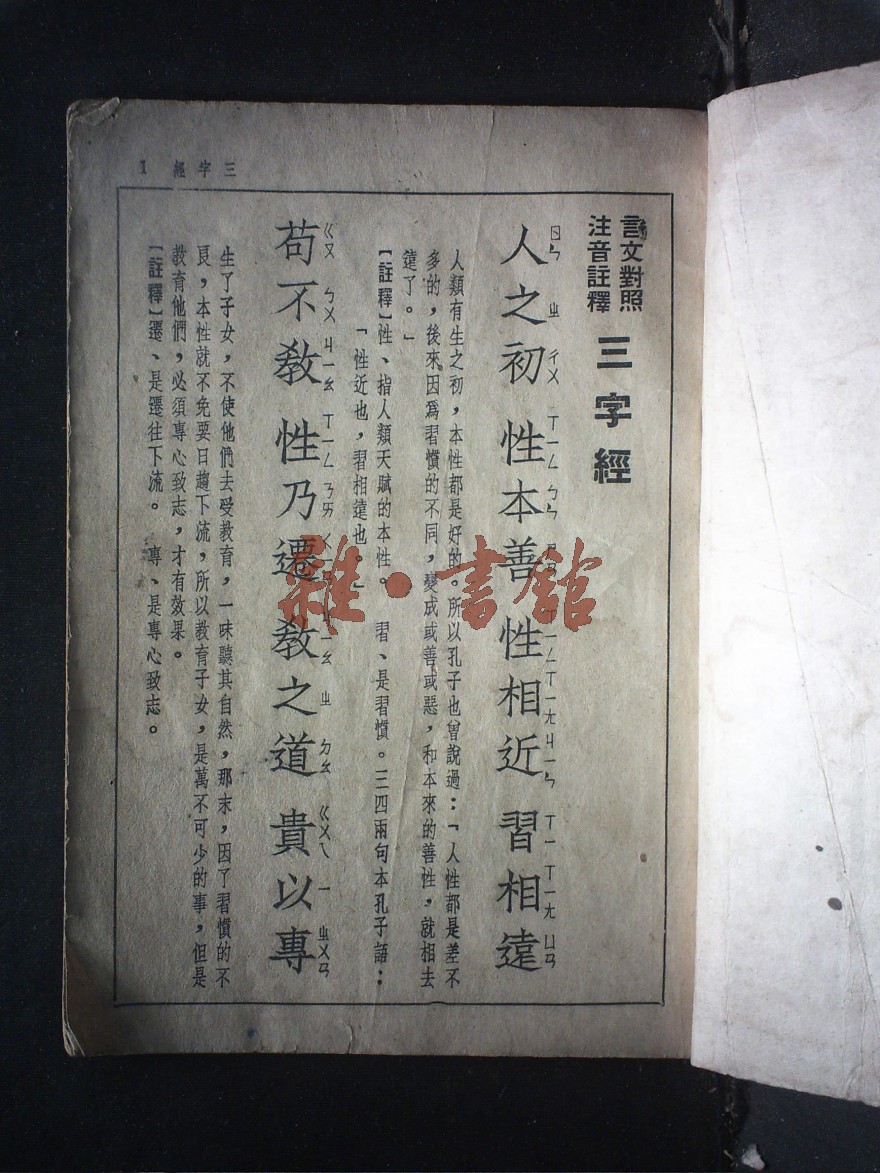 三字經 1
言文對照
注音註釋
三字經
人之初 性本善 性相近 習相遠
ㄖㄣ ㄓ ㄔㄨ ㄒㄧㄥ ㄅㄣ ㄒㄧㄥ ㄒㄧㄤ ㄐㄧㄣ ㄒㄧ ㄒㄧㄤ ㄩㄢ
人類有生之初，本性都是好的。所以孔子也曾說過：「人性都是差不
多的，後來因爲習慣的不同，變成或善或惡，和本來的善性，就相去
遠了。」
【註釋】性、指人類天賦的本性。 習、是習慣。三四兩句本孔子語：
「性近也，習相遠也。」
苟不教 性乃遷 教之道 貴以專
ㄍㄡ ㄅㄨ ㄐㄧㄠ ㄒㄧㄥ ㄋㄞ ㄓ ㄉㄠ ㄍㄨㄟ ㄧ ㄓㄨㄢ
生了子女，不使他們去受教育，一味聽其自然，那末，因了習慣的不
良，本性就不免要日趨下流，所以教育子女，是萬不可少的事，但是
教育他們，必須專心致志，才有效果。
【註釋】遷、是遷往下流。 專、是專心致志。
雜·書館